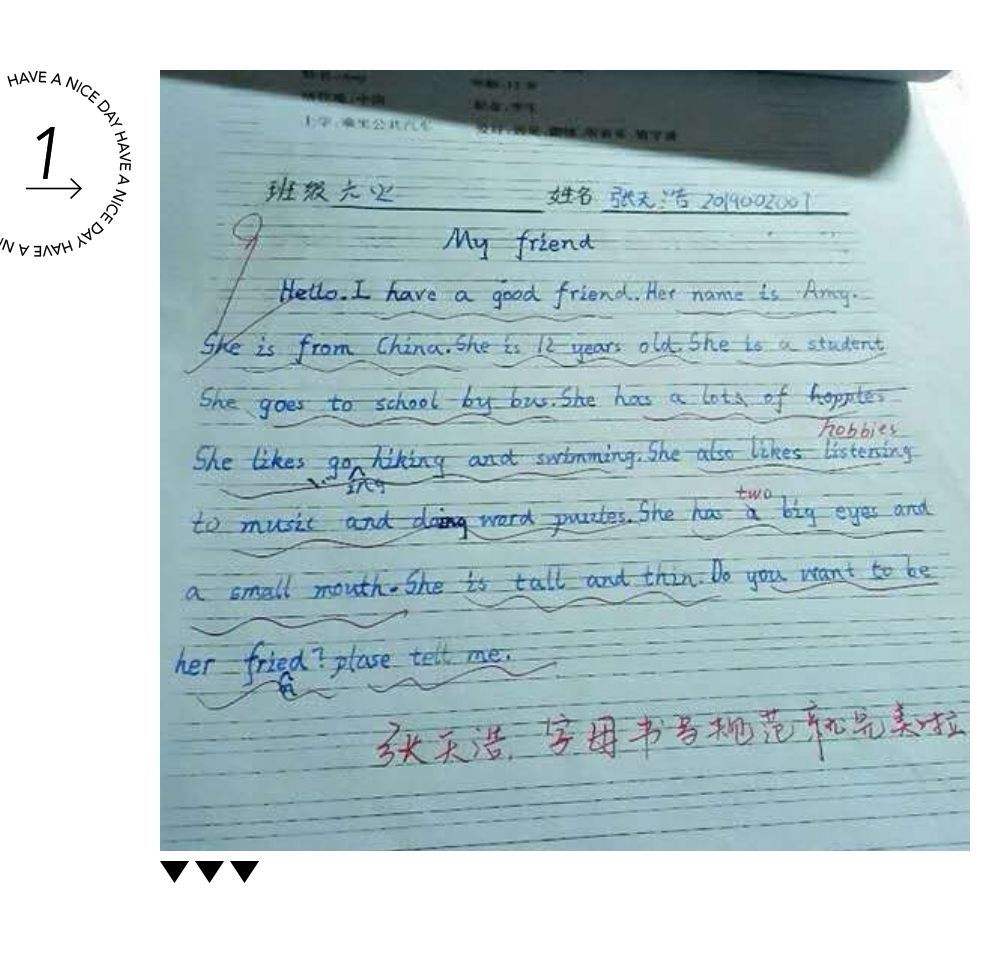 HAVE A NICE DAY HAVE A NICE DAY HAVE A NI
1
上学:乘坐公共汽车
班级 六 姓名 张天浩 2019002007
My friend
Hello. I have a good friend. Her name is Amy.
She is from China. She is 12 years old. She is a student
She goes to school by bus. She has a lots of hopptes
hobbies
She likes go hiking and swimming. She also likes listening
ing
two
to music and doing word puzztes. She has a big eyes and
a small mouth. She is tall and thin. Do you want to be
her fried? plase tell me.
n
张天浩, 字母书写规范就完美啦